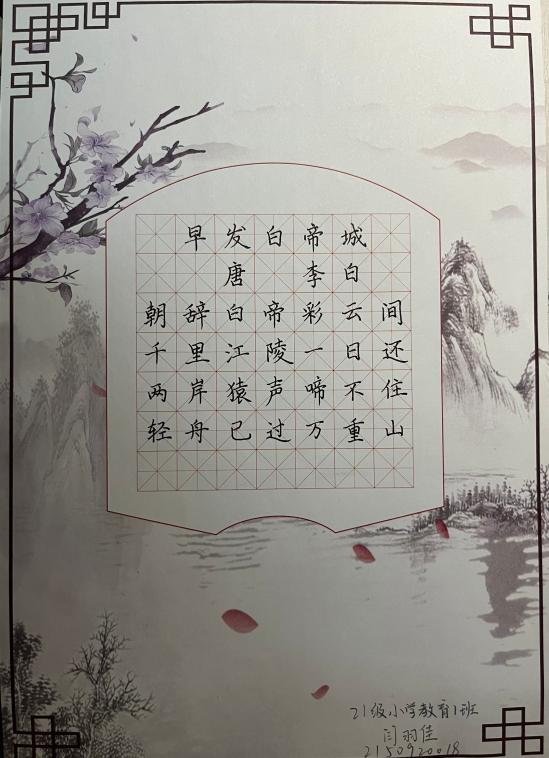 早发白帝城
唐 李白
朝辞白帝彩云间
千里江陵一日还
两岸猿声啼不住
轻舟已过万重山
21级小学教育1班
闫羽佳
2150920018